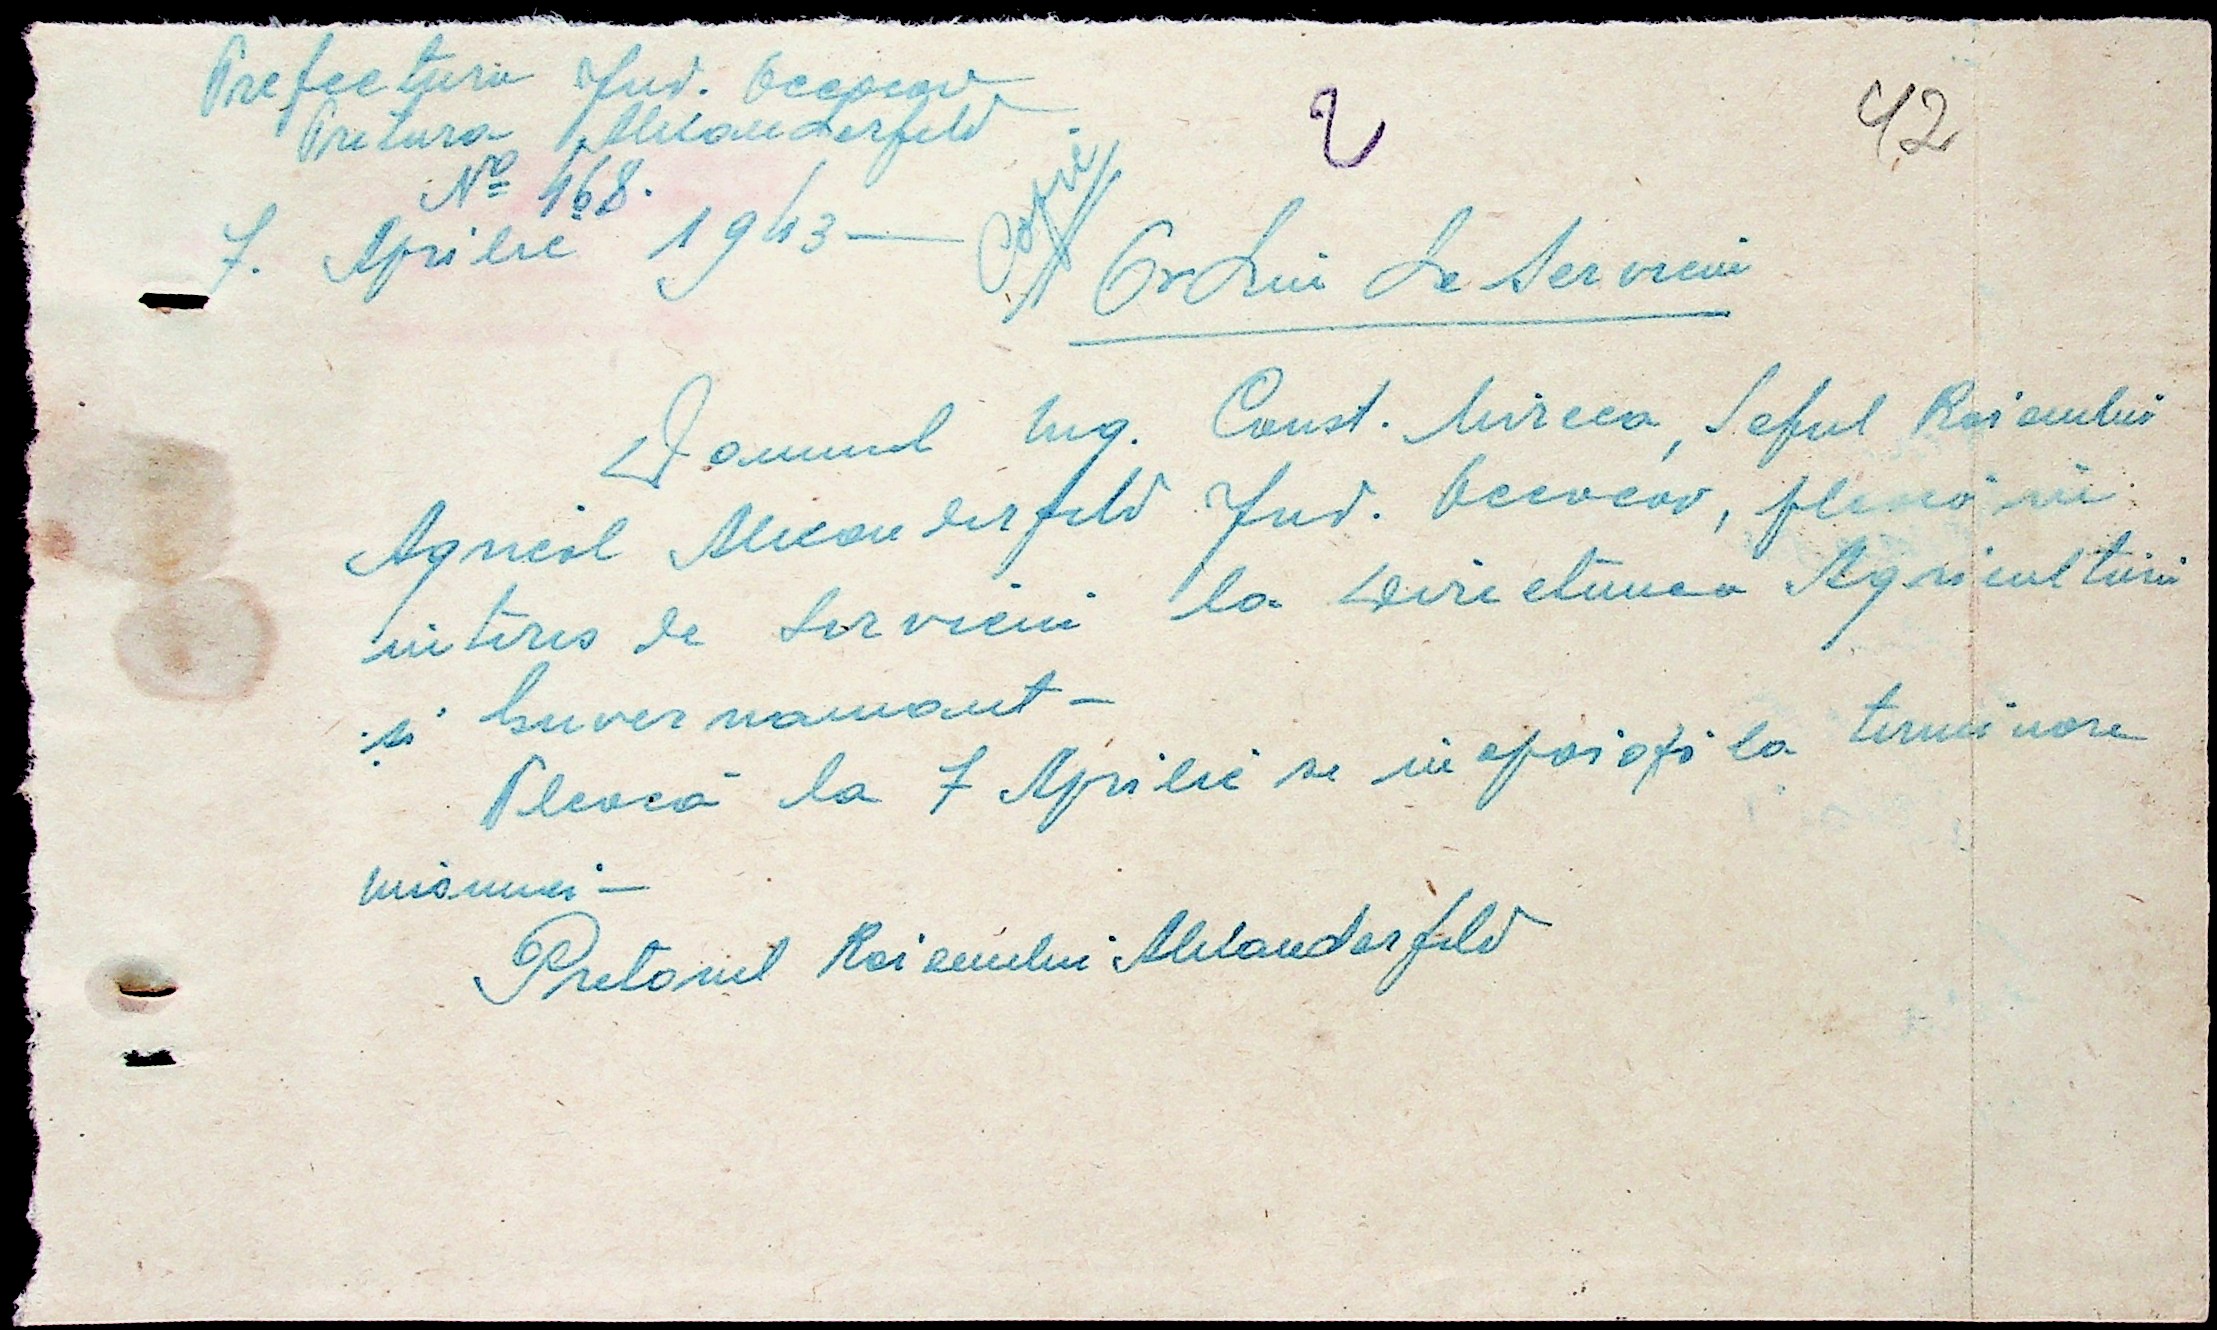 Prefectura Jud. Oceacov
Pretura Alexanderfeld
2
42
Nº 468.
7. Aprilie 1943 —
Copie
Ordin de Serviciu
Domnul Ing. Const. Mircea, Seful Raionului
Agricol Alexanderfeld Jud. Oceacov, pleacă in
interes de serviciu la Directiunea Agriculturii
și Guvernamant —
Pleacă la 7 Aprilie se inapoiază la terminare
misiunei —
Pretorul Raionului Alexanderfeld